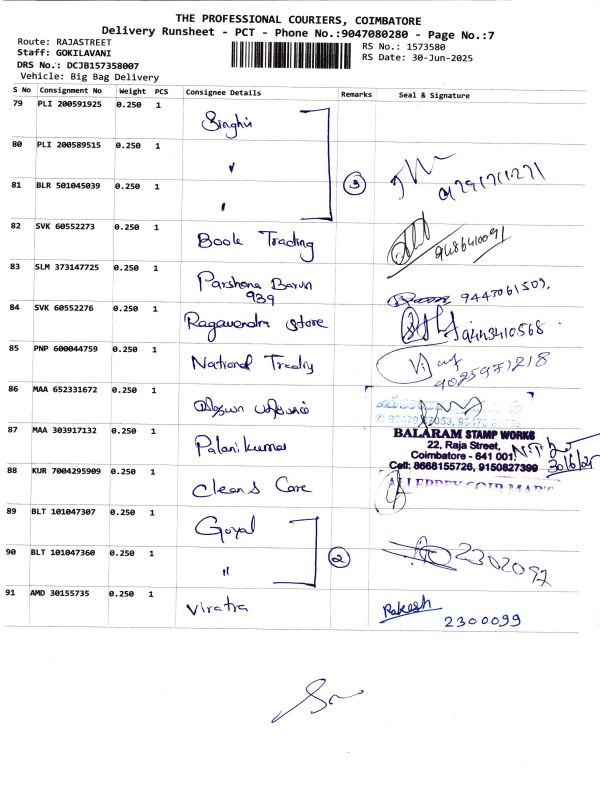 THE PROFESSIONAL COURIERS, COIMBATORE
Delivery Runsheet - PCT - Phone No.:9047080280 - Page No.:7
Route: RAJASTREET
Staff: GOKILAVANI
DRS No.: DCJB157358007
Vehicle: Big Bag Delivery
RS No.: 1573580
RS Date: 30-Jun-2025
S No Consignment No Weight PCS Consignee Details Remarks Seal & Signature
79 PLI 200591925 0.250 1 Singhvi
80 PLI 200589515 0.250 1 "
81 BLR 501045039 0.250 1 " 3
82 SVK 60552273 0.250 1 Book Trading 9486410091
83 SLM 373147725 0.250 1 Parshona Barun 939 9447061509
84 SVK 60552276 0.250 1 Ragavendra Store 9443410568
85 PNP 600044759 0.250 1 National Trading 9025971218
86 MAA 652331672 0.250 1
87 MAA 303917132 0.250 1 Palanikumar
BALARAM STAMP WORKS
22, Raja Street,
Coimbatore - 641 001.
Cell: 8668155726, 9150827399
30/6/25
88 KUR 7004295909 0.250 1 Cleans Care ALLEPPEY COIR MART
89 BLT 101047307 0.250 1 Goyal
90 BLT 101047360 0.250 1 " 2 2302097
91 AMD 30155735 0.250 1 Viratra Rakesh
2300099